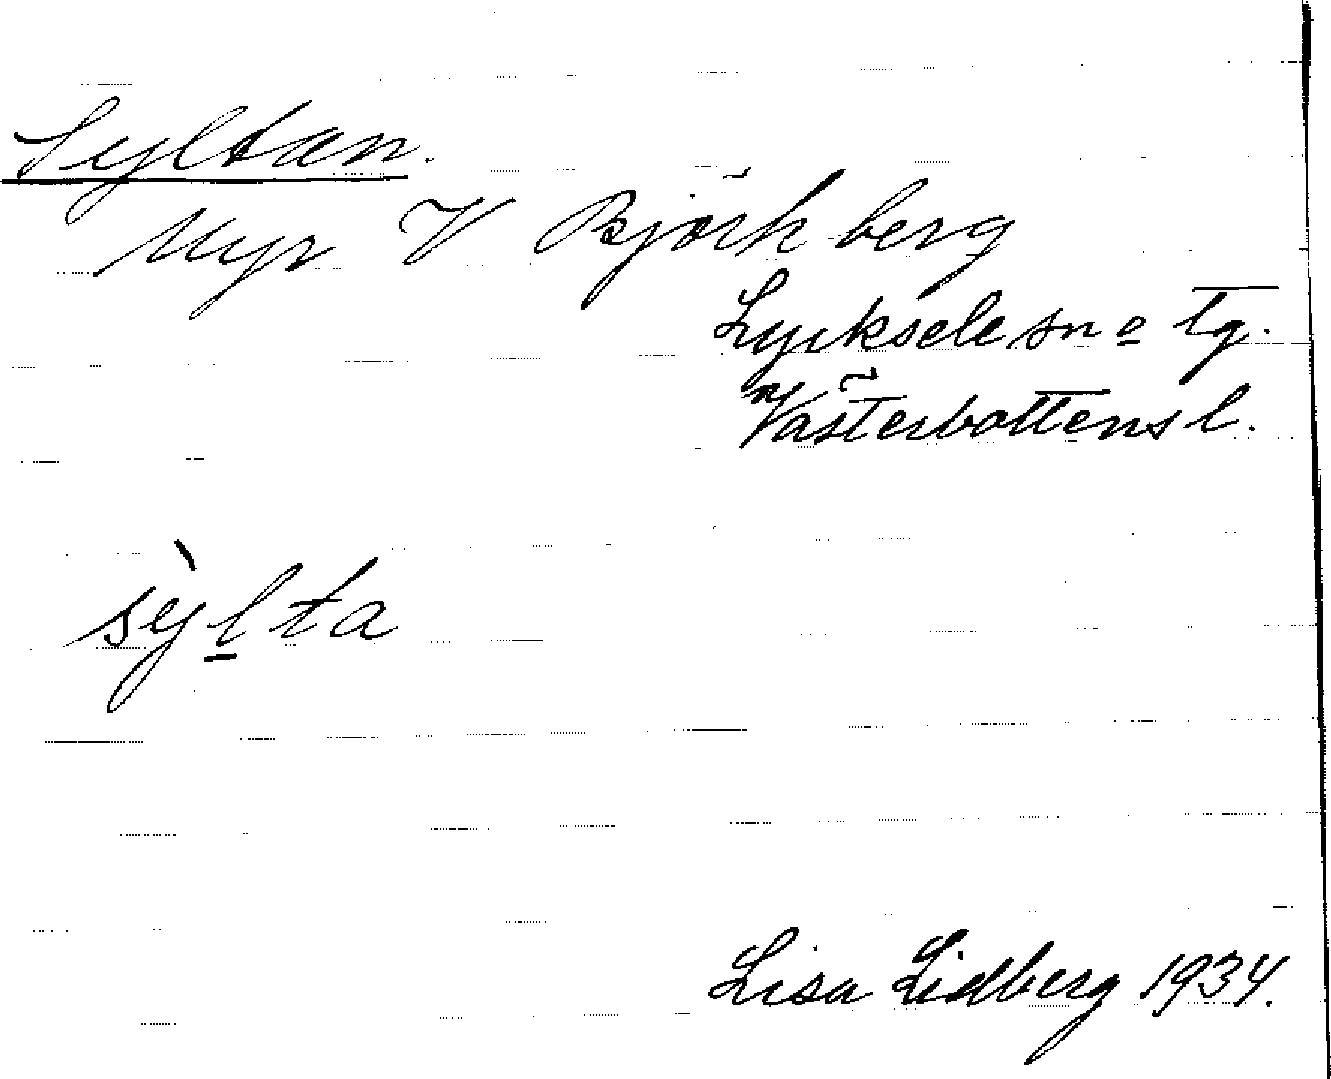 Syltan.
Myr V Björkberg
Lycksele sn o tg.
Västerbottens l.
sỳl̲ta
Lisa Lidberg 1934.